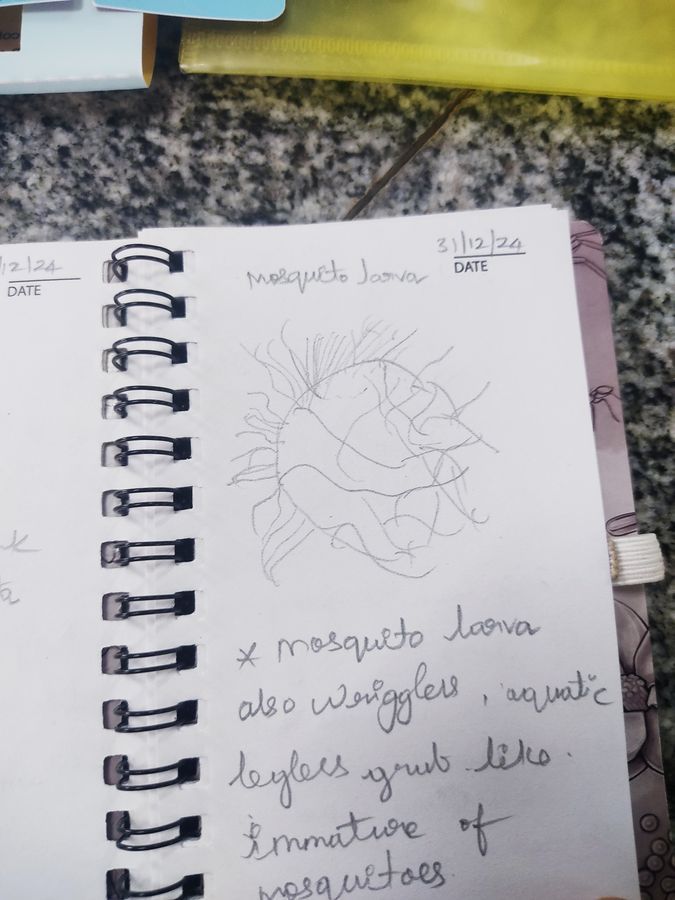 12/24
DATE
31/12/24
DATE
mosquito larva
* mosquito larva
also wrigglers, aquatic
legless grub like.
immature of
mosquitoes.